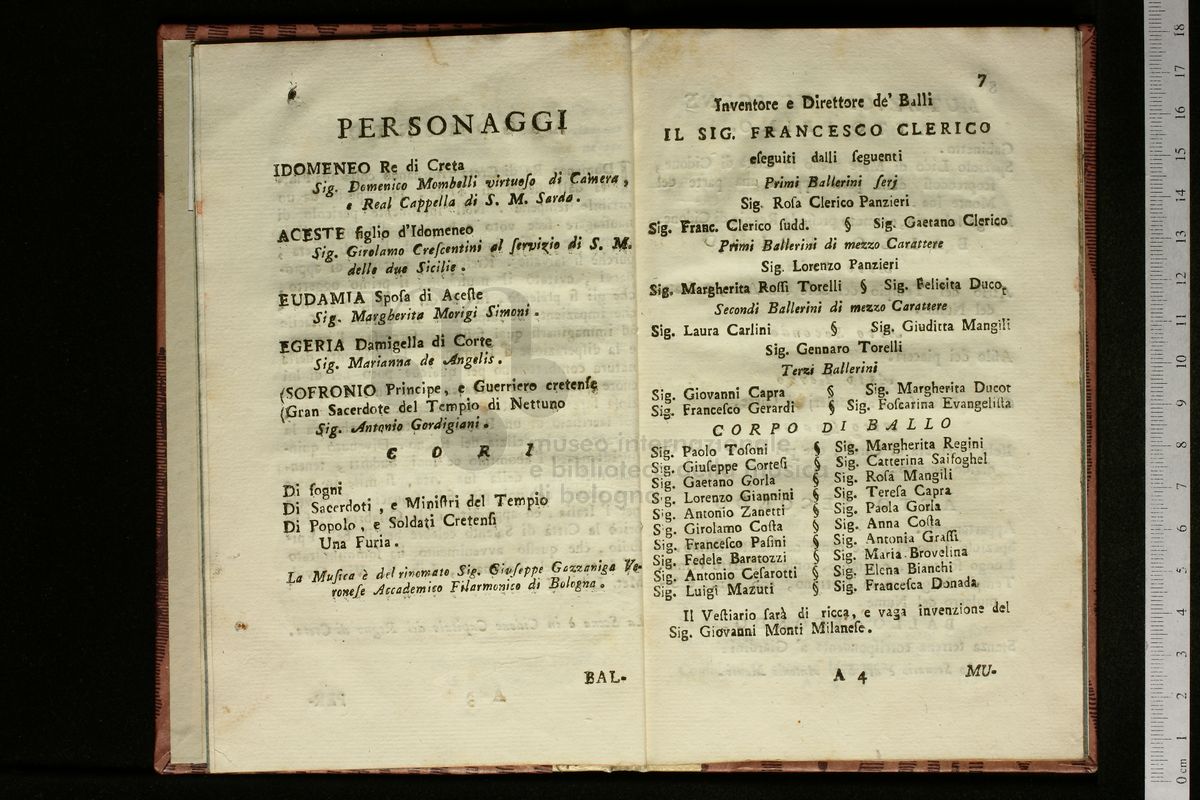 PERSONAGGI
IDOMENEO Re di Creta
Sig. Domenico Mombelli virtuoſo di Camera,
e Real Cappella di S. M. Sarda.
ACESTE figlio d'Idomeneo
Sig. Girolamo Creſcentini al ſervizio di S. M.
delle due Sicilie.
EUDAMIA Spoſa di Aceſte
Sig. Margherita Morigi Simoni.
EGERIA Damigella di Corte
Sig. Marianna de Angelis.
(SOFRONIO Principe, e Guerriero cretenſe
(Gran Sacerdote del Tempio di Nettuno
Sig. Antonio Gordigiani.
C O R I
Di ſogni
Di Sacerdoti, e Miniſtri del Tempio
Di Popolo, e Soldati Cretenſi
Una Furia.
La Muſica è del rinomato Sig. Giuſeppe Gazzaniga Ve-
roneſe Accademico Filarmonico di Bologna.
BAL-
7
Inventore e Direttore de' Balli
IL SIG. FRANCESCO CLERICO
eſeguiti dalli ſeguenti
Primi Ballerini ſerj
Sig. Roſa Clerico Panzieri
Sig. Franc. Clerico ſudd. § Sig. Gaetano Clerico
Primi Ballerini di mezzo Carattere
Sig. Lorenzo Panzieri
Sig. Margherita Roſſi Torelli § Sig. Felicita Ducot
Secondi Ballerini di mezzo Carattere
Sig. Laura Carlini § Sig. Giuditta Mangili
Sig. Gennaro Torelli
Terzi Ballerini
Sig. Giovanni Capra § Sig. Margherita Ducot
Sig. Franceſco Gerardi § Sig. Foſcarina Evangeliſta
CORPO DI BALLO
Sig. Paolo Toſoni § Sig. Margherita Regini
Sig. Giuſeppe Corteſi § Sig. Catterina Saifoghel
Sig. Gaetano Gorla § Sig. Roſa Mangili
Sig. Lorenzo Giannini § Sig. Tereſa Capra
Sig. Antonio Zanetti § Sig. Paola Gorla
Sig. Girolamo Coſta § Sig. Anna Coſta
Sig. Franceſco Paſini § Sig. Antonia Graſſi
Sig. Fedele Baratozzi § Sig. Maria Brovelina
Sig. Antonio Ceſarotti § Sig. Elena Bianchi
Sig. Luigi Mazuti § Sig. Franceſca Donada
Il Veſtiario ſarà di ricca, e vaga invenzione del
Sig. Giovanni Monti Milaneſe.
A 4 MU-
museo internazionale
e biblioteca della musica
di bologna
0 cm 1 2 3 4 5 6 7 8 9 10 11 12 13 14 15 16 17 18